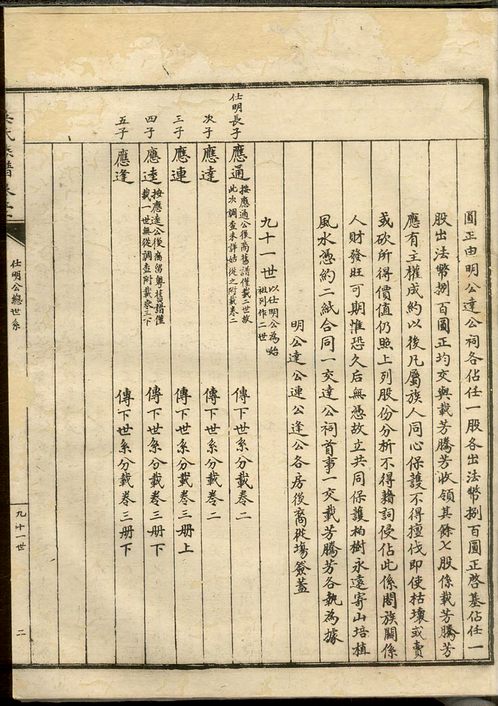 圓正由明公達公祠各佔任一股各出法幣捌百圓正啓基佔任一
股出法幣捌百圓正均交與載芳騰芳收領其餘七股係載芳騰芳
應有主權成約以後凡屬族人同心保護不得擅伐即使枯壞或賣
或砍所得價值仍照上列股份分析不得藉詞侵佔此係閤族關係
人財發旺可期惟恐久后無憑故立共同保護枸樹永遠寄山培植
風水憑約二紙合同一交達公祠首事一交載芳騰芳各執為據
明公達公連公逢公各房後裔從塲簽蓋
九十一世以仕明公為始祖列作二世
仕明長子 應通 按應通公後裔舊譜僅載二世故此次調查未詳姑從之附載卷二 傳下世系分載卷二
次子 應達 傳下世系分載卷二
三子 應連 傳下世系分載卷三冊上
四子 應逵 按應逵公後裔留粵舊譜僅載一世無從調查附載卷三下 傳下世系分載卷三冊下
五子 應逢 傳下世系分載卷三冊下
氏族譜卷
仕明公總世系
九十一世
二